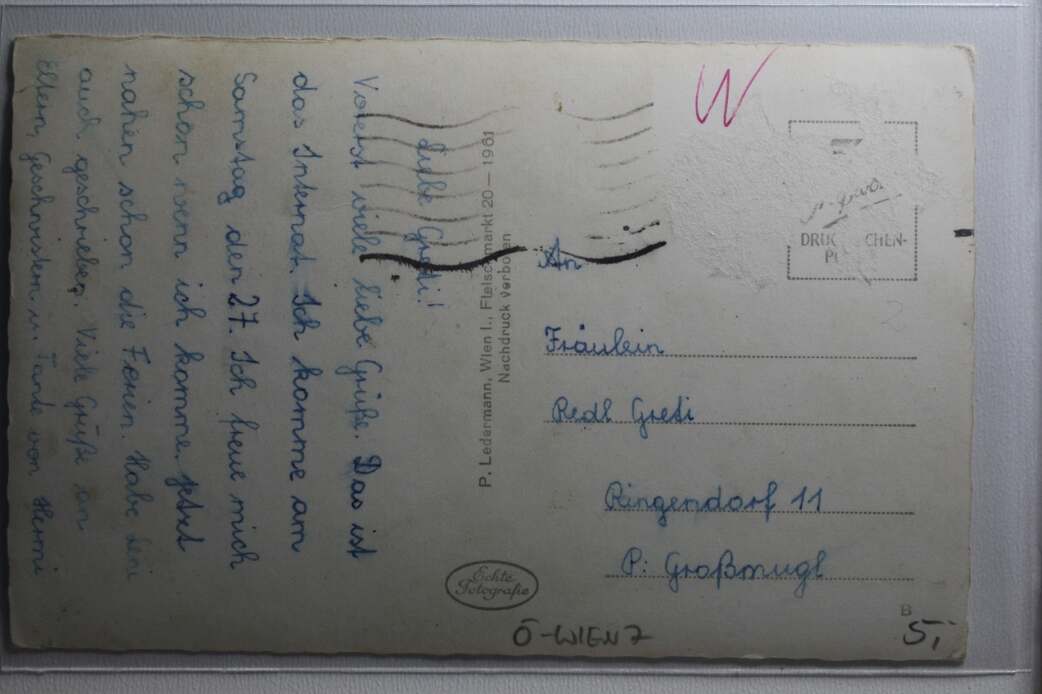 Liebe Gredi!
Vorerst viele liebe Grüße. Das ist
das Internat. Ich komme am
Samstag den 27. Ich freue mich
schon wenn ich komme. Jetzt
nahen schon die Ferien. Habe Leni
auch geschrieben. Viele Grüße an
Eltern, Geschwistern u. Tante von Hermi
P. Ledermann, Wien I., Fleischmarkt 20 — 1961
Nachdruck verboten
Echte
Fotografie
W
DRUC CHEN-
P
An
Fräulein
Redl Gredi
Ringendorf 11
P: Großmugl
B
5,-
Ö-WIEN 7